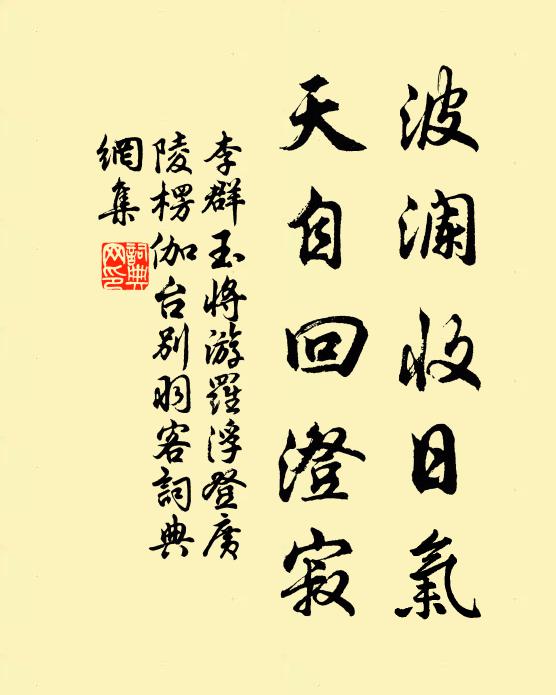 波澜收日氣
天自回澄寂
李群玉將游羅浮登廣
陵楞伽台别羽客詞典
網集
詞典网印